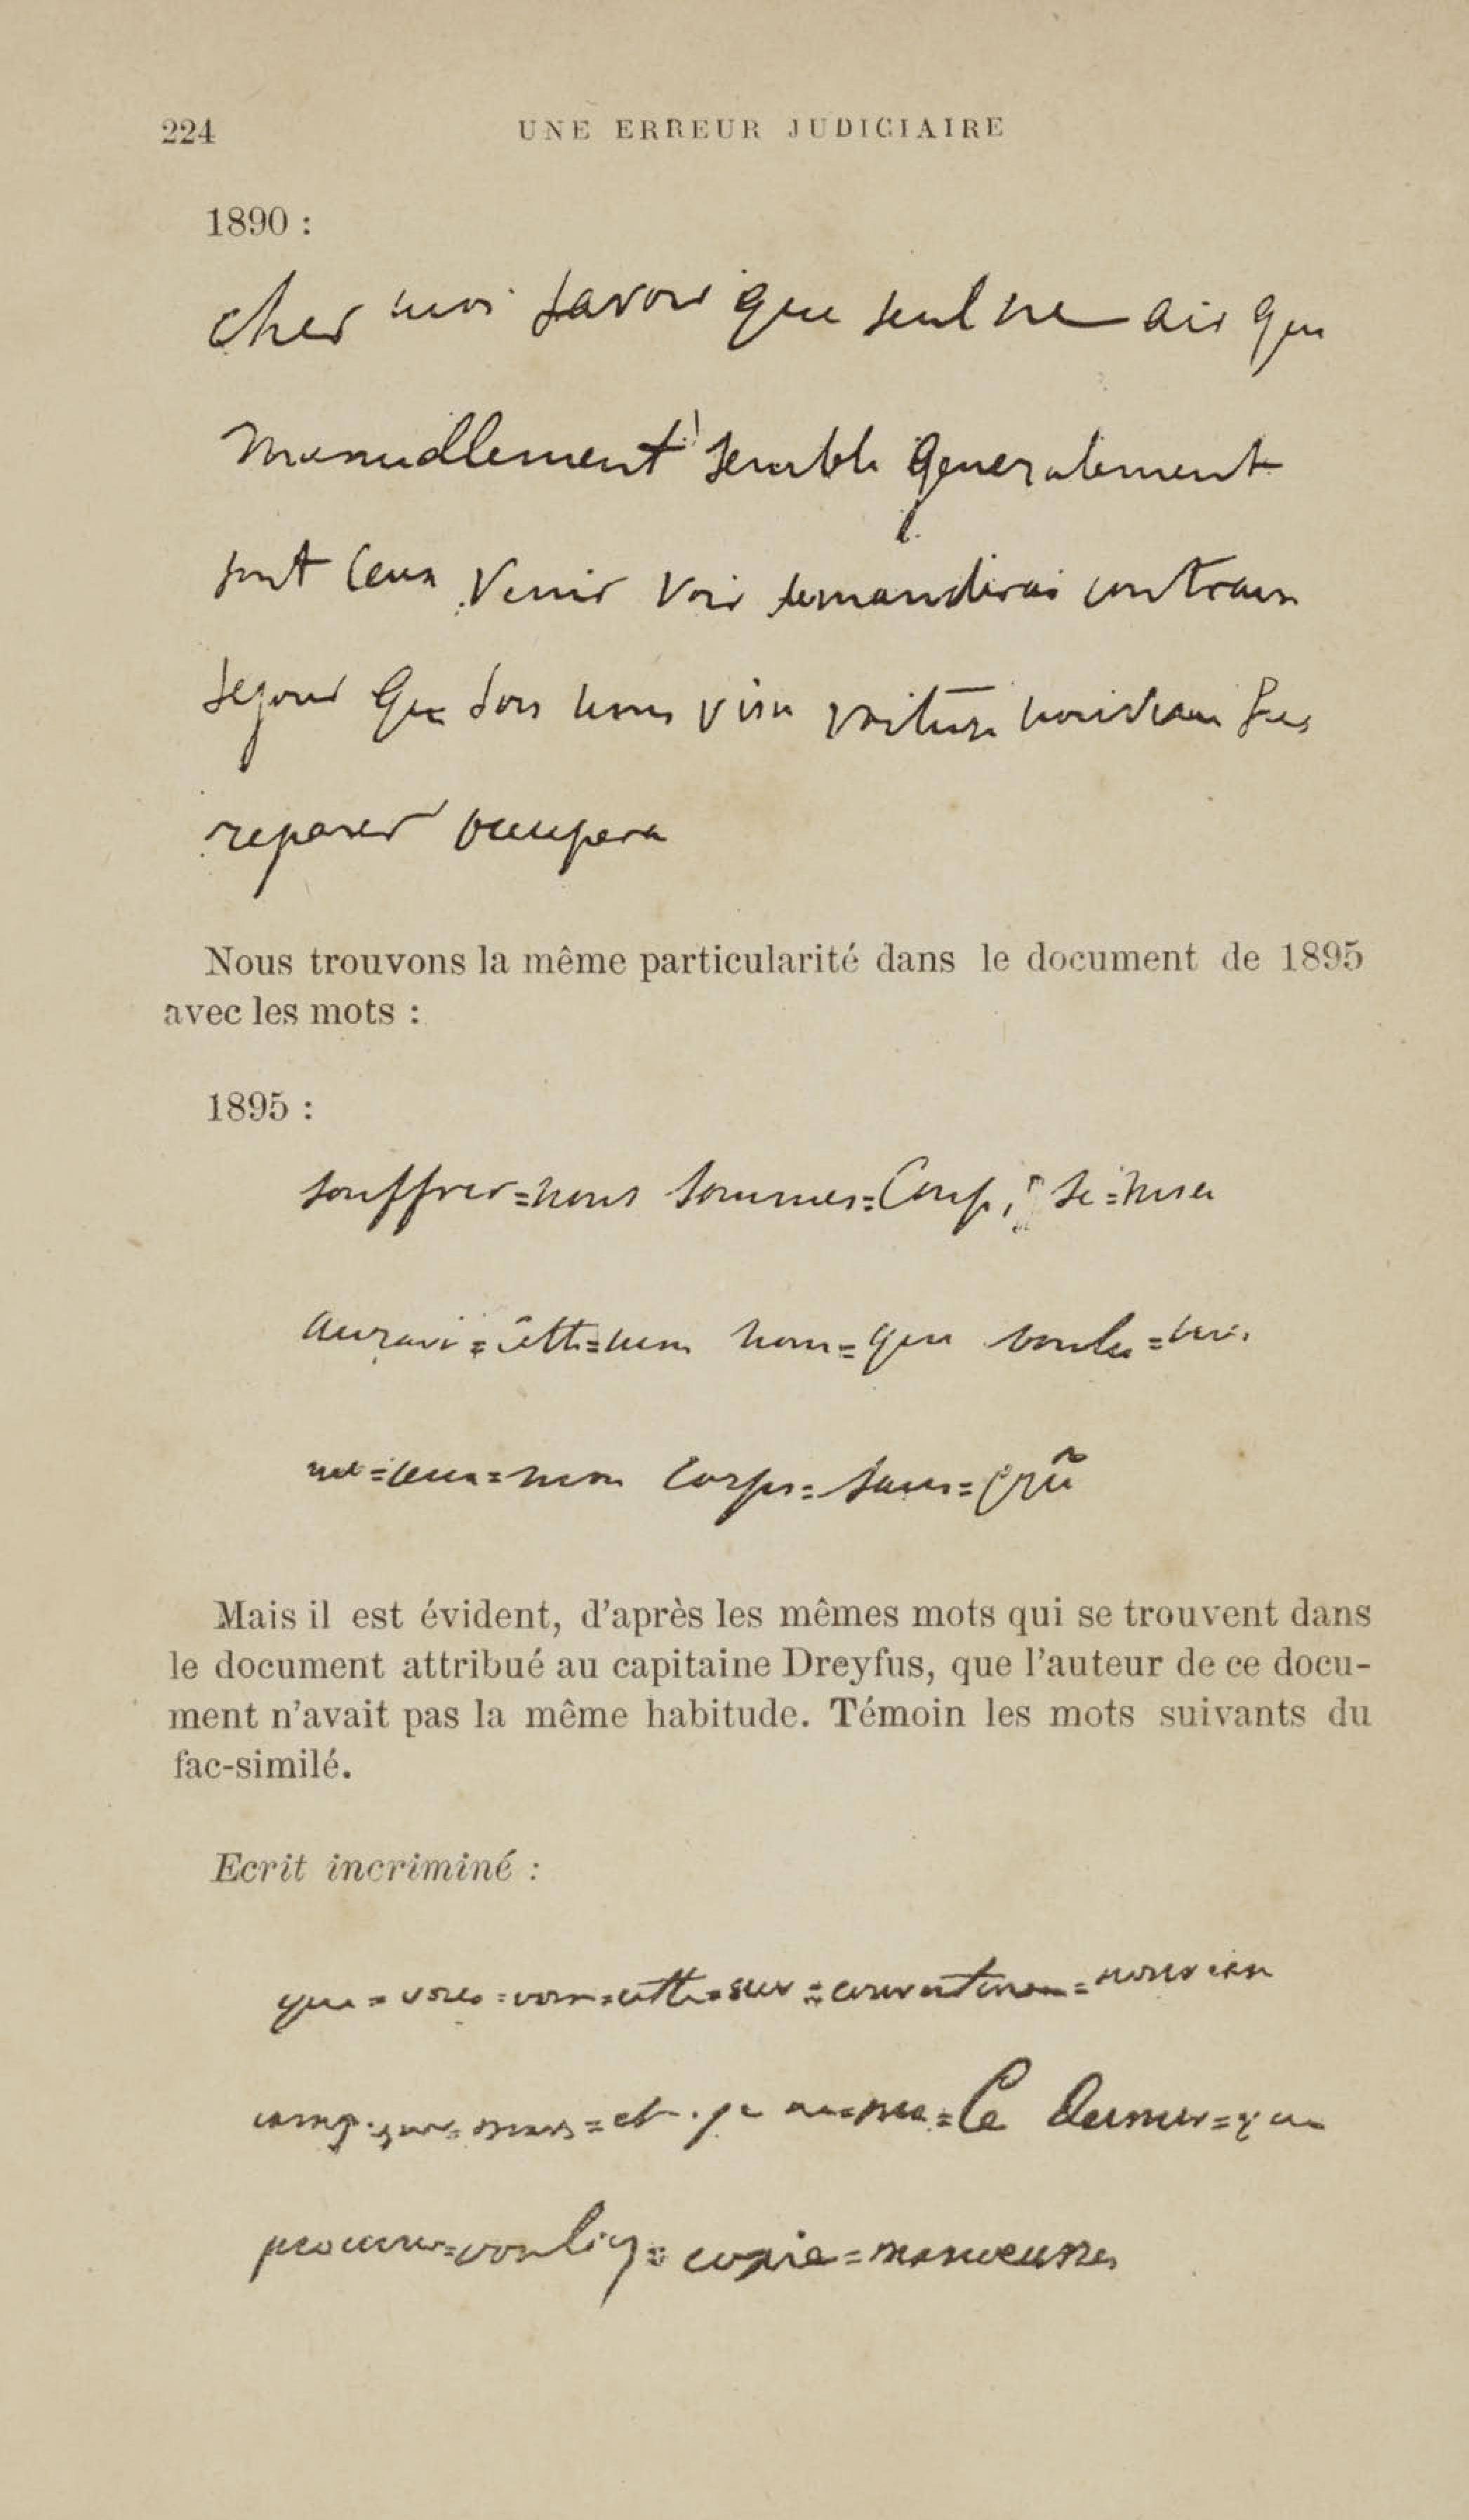 224 UNE ERREUR JUDICIAIRE
1890 :
cher moi savoir que seul ne air que
manuellement semble généralement
sont ceux venir voir demanderai contraire
séjour que sors nous voiture nouveau
reposer occupera
Nous trouvons la même particularité dans le document de 1895
avec les mots :
1895 :
souffrir=nous sommes=Coup, se=
aurai=cette= nous=que voulu=
=ceux=mon corps=sans=
Mais il est évident, d'après les mêmes mots qui se trouvent dans
le document attribué au capitaine Dreyfus, que l'auteur de ce docu-
ment n'avait pas la même habitude. Témoin les mots suivants du
fac-similé.
Ecrit incriminé :
que=vous=vous=cette=sur=couverture=nouveau
corps=que=mais=et.je ne=me=Ce dernier=que
procurer=vouliez=copie=manœuvres